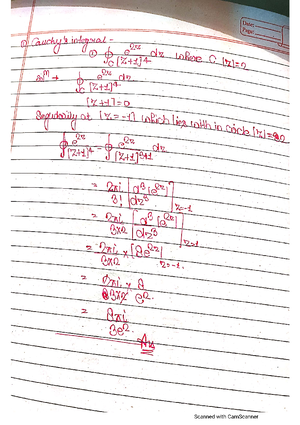 Date:
Page:
① Cauchy's integral -
① ∮c e^2z/[z+1]^4 dz where C |z|=2
Sol^n → ∮c e^2z/[z+1]^4 dz
[z+1]=0
Singularity at [z=-1] which lies with in circle |z|=
∮ e^2z/[z+1]^4 = ∮ e^2z/[z+1]^3+1 dz
= 2πi/3! [d^3/dz^3 [e^2z]] z=-1
= 2πi/3×2 [d^3 [e^2z]/dz^3] z=1
= 2πi/3×2 × [8e^2z] z=-1
= 2πi/3×2 × 8/e^2
= 8πi/3e^2
Ans
Scanned with CamScanner